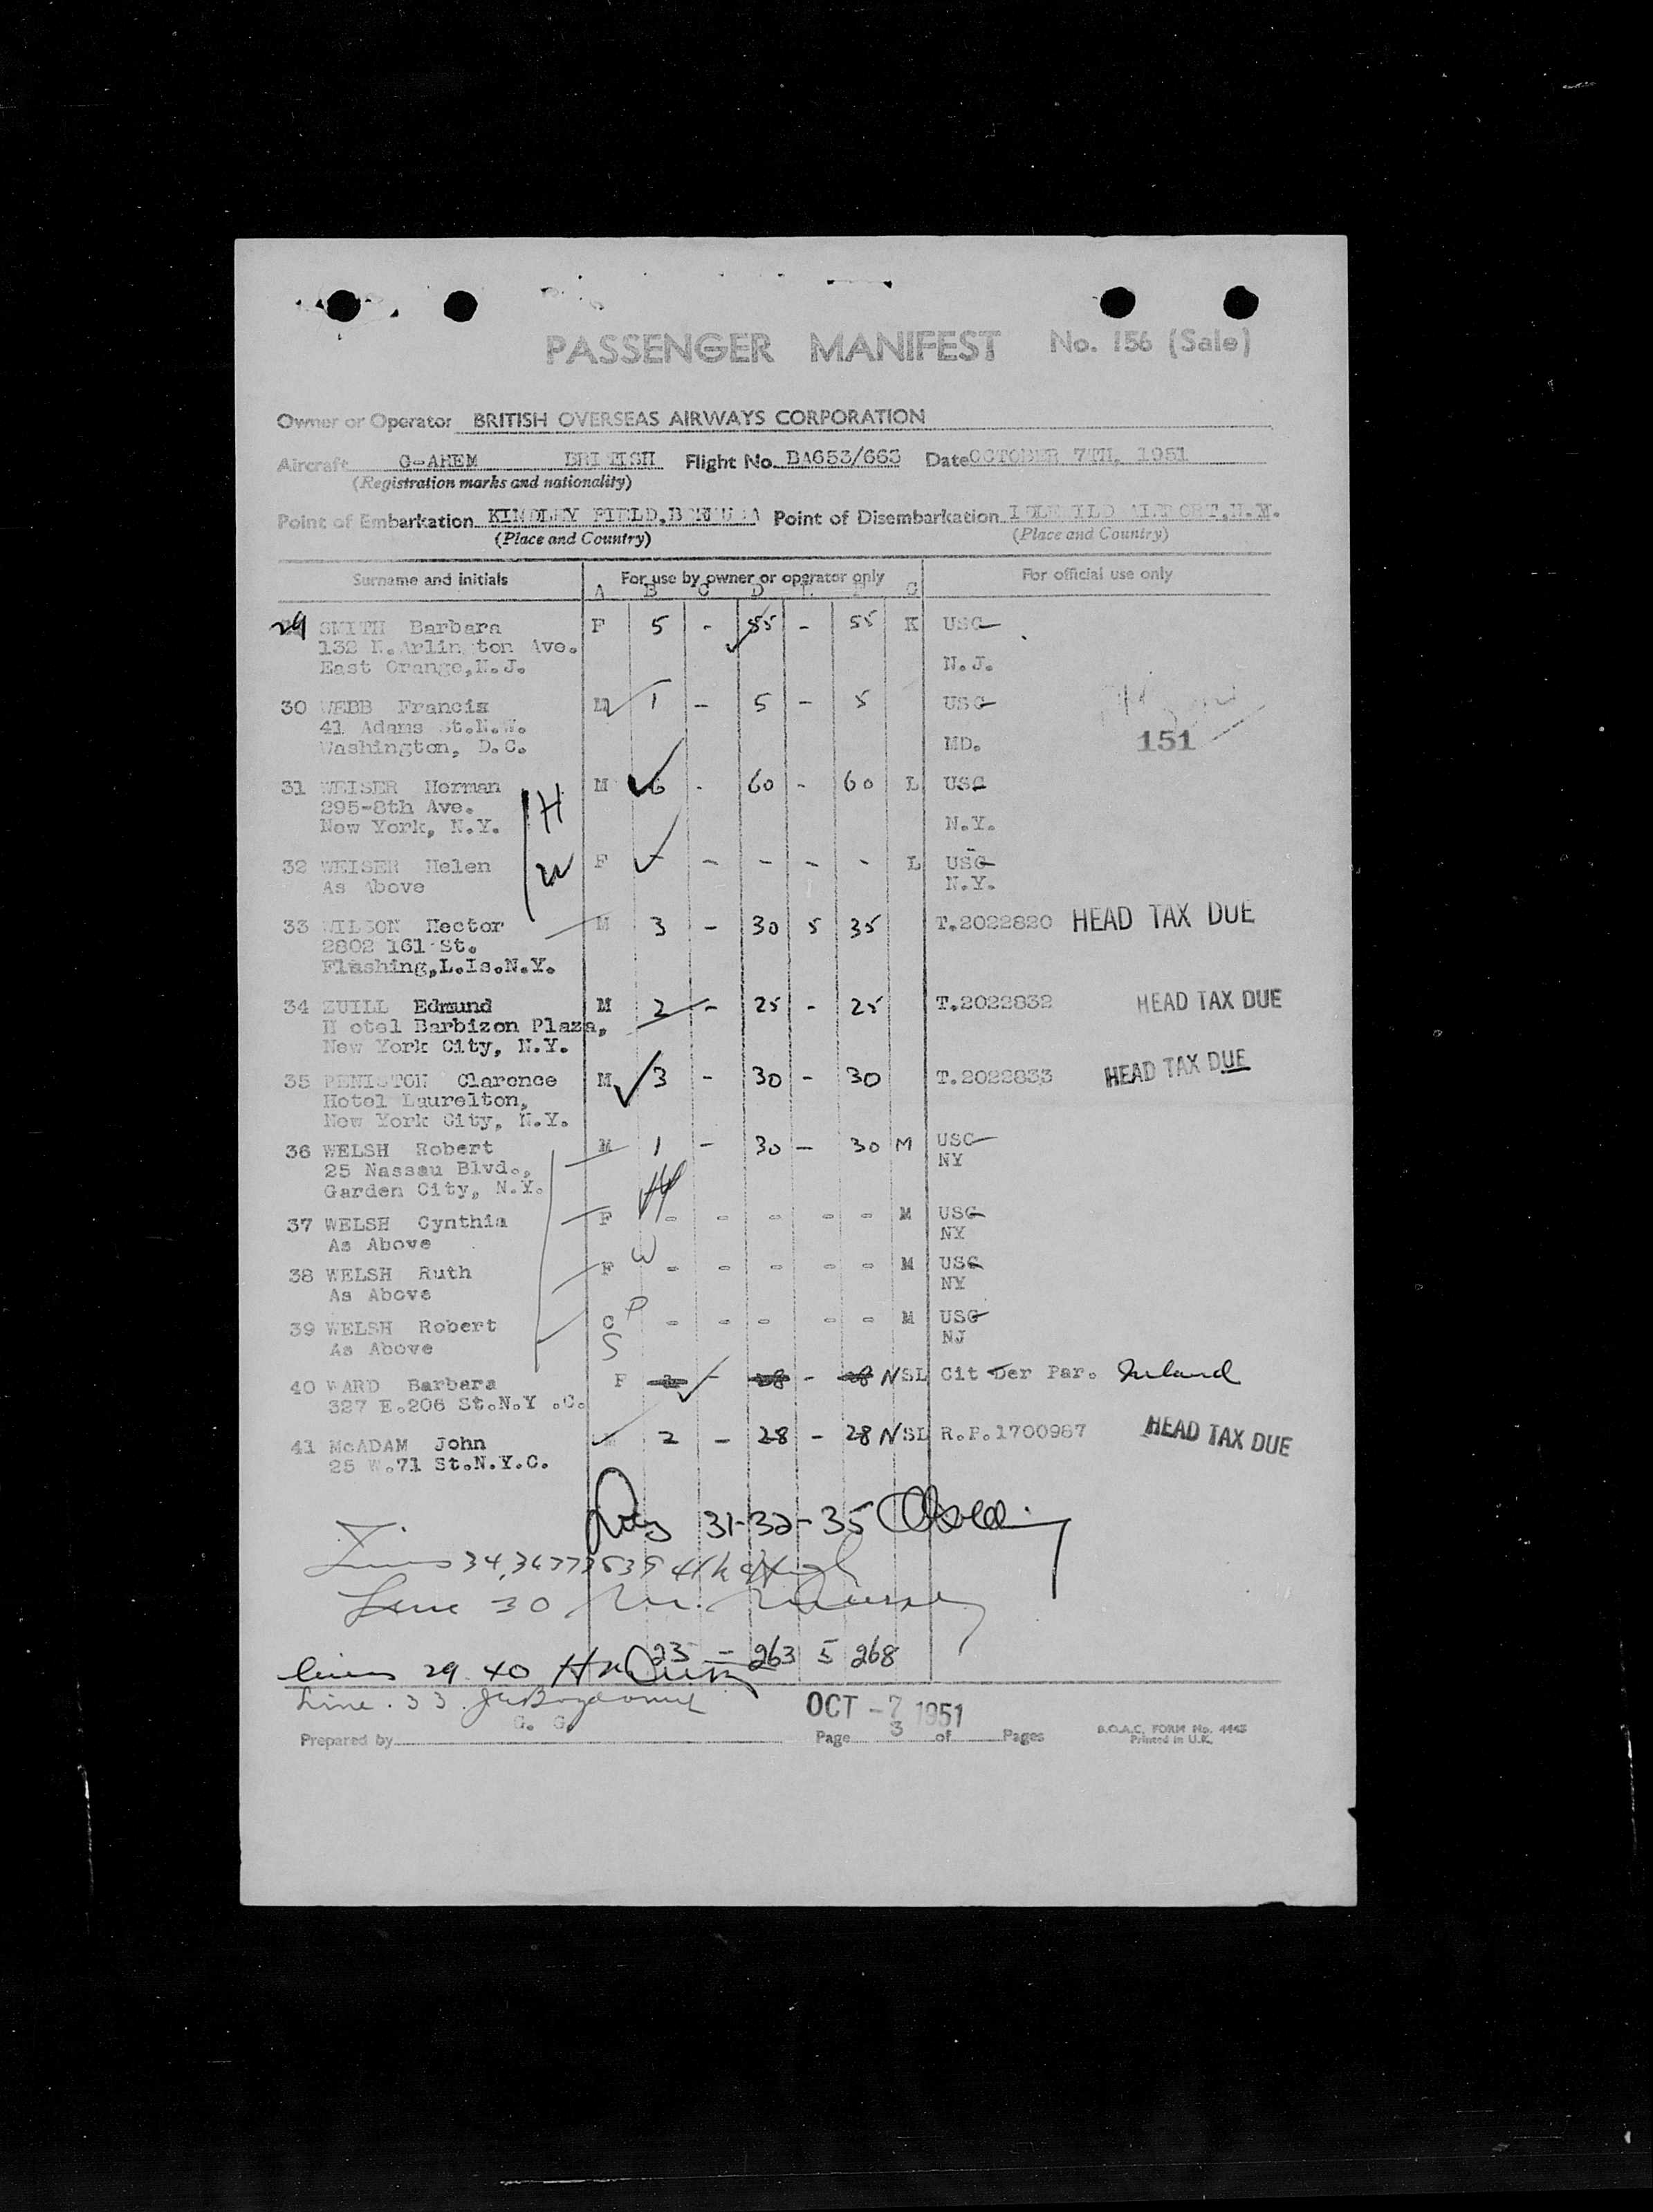 PASSENGER MANIFEST No. 156 (Sale)
Owner or Operator BRITISH OVERSEAS AIRWAYS CORPORATION
Aircraft G-AHEM BRITISH Flight No. BA653/663 Date OCTOBER 7TH, 1951
(Registration marks and nationality)
Point of Embarkation KINDLEY FIELD, BERMUDA Point of Disembarkation IDLEWILD AIRPORT, N.Y.
(Place and Country) (Place and Country)
Surname and initials For use by owner or operator only For official use only
A B C D E F G
29 SMITH Barbara F 5 - 55 - 55 K USC
132 N. Arlington Ave.
East Orange, N.J. N.J.
30 WEBB Francis M 1 - 5 - 5 USC
41 Adams St.N.W.
Washington, D.C. MD. 151
31 WEISER Herman M 6 - 60 - 60 L USC
295-8th Ave. H
New York, N.Y. N.Y.
32 WEISER Helen W F - - - - - L USC
As Above N.Y.
33 WILSON Hector M 3 - 30 5 35 T.2022820 HEAD TAX DUE
2802 161 St.
Flushing, L.Is.N.Y.
34 ZUILL Edmund M 2 - 25 - 25 T.2022832 HEAD TAX DUE
H otel Barbizon Plaza,
New York City, N.Y.
35 PENISTON Clarence M 3 - 30 - 30 T.2022833 HEAD TAX DUE
Hotel Laurelton,
New York City, N.Y.
36 WELSH Robert M 1 - 30 - 30 M USC
25 Nassau Blvd., NY
Garden City, N.Y. H
37 WELSH Cynthia F - - - - - M USC
As Above NY
W
38 WELSH Ruth F - - - - - M USC
As Above NY
D
39 WELSH Robert C - - - - - M USC
As Above S NJ
40 WARD Barbara F 2 - 28 - 28 NSL Cit Der Par. Ireland
327 E.206 St.N.Y .C.
41 McADAM John M 2 - 28 - 28 NSL R.P.1700987 HEAD TAX DUE
25 W.71 St.N.Y.C.
31-32-35
Lines 34, 36 37 38 39 41
Line 30
23 - 263 5 268
lines 29. 40
Line. 33.
OCT -7 1951
G. G.
Prepared by Page 3 of Pages B.O.A.C. FORM No. 4445
Printed in U.K.